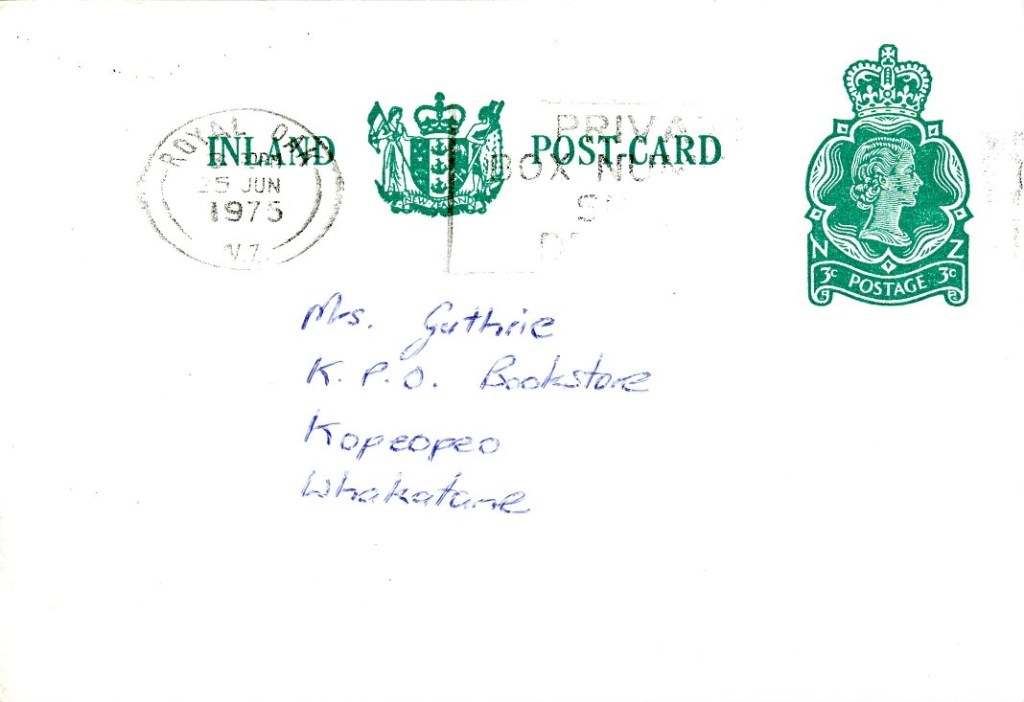 ROYAL OAK
PM
25 JUN
1975
N.Z.
INLAND
NEW ZEALAND
POST-CARD
PRIVATE
BOX NUM
N Z
3c POSTAGE 3c
Mrs. Guthrie
K. P. O. Bookstore
Kopeopeo
Whakatane